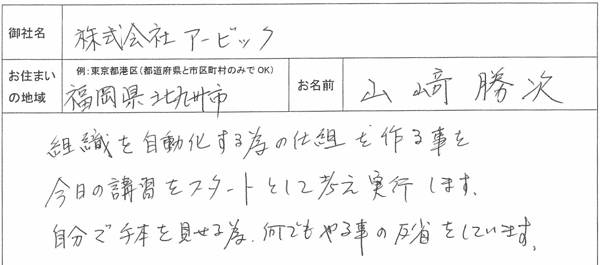 御社名 株式会社 アービック
お住まいの地域 例:東京都港区(都道府県と市区町村のみでOK) 福岡県 北九州市 お名前 山﨑 勝次
組織を自動化する為の仕組を作る事を
今日の講習をスタートとして考え実行します。
自分で手本を見せる為、何でもやる事の反省をしています。